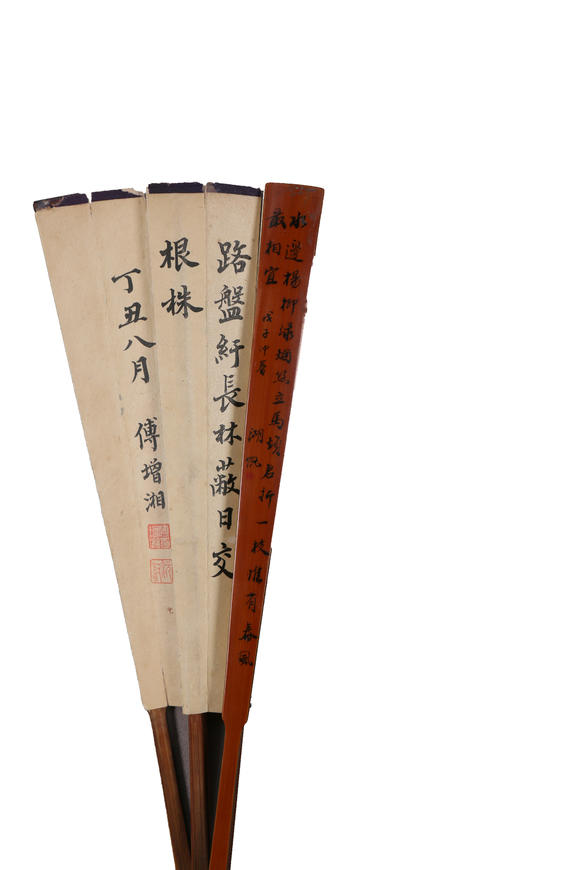 水邊楊柳綠烟絲立馬煩君折一枝惟有春風
最相宜
戊子中暑
湖帆
路盤紆長林蔽日交
根株
丁丑八月
傅增湘